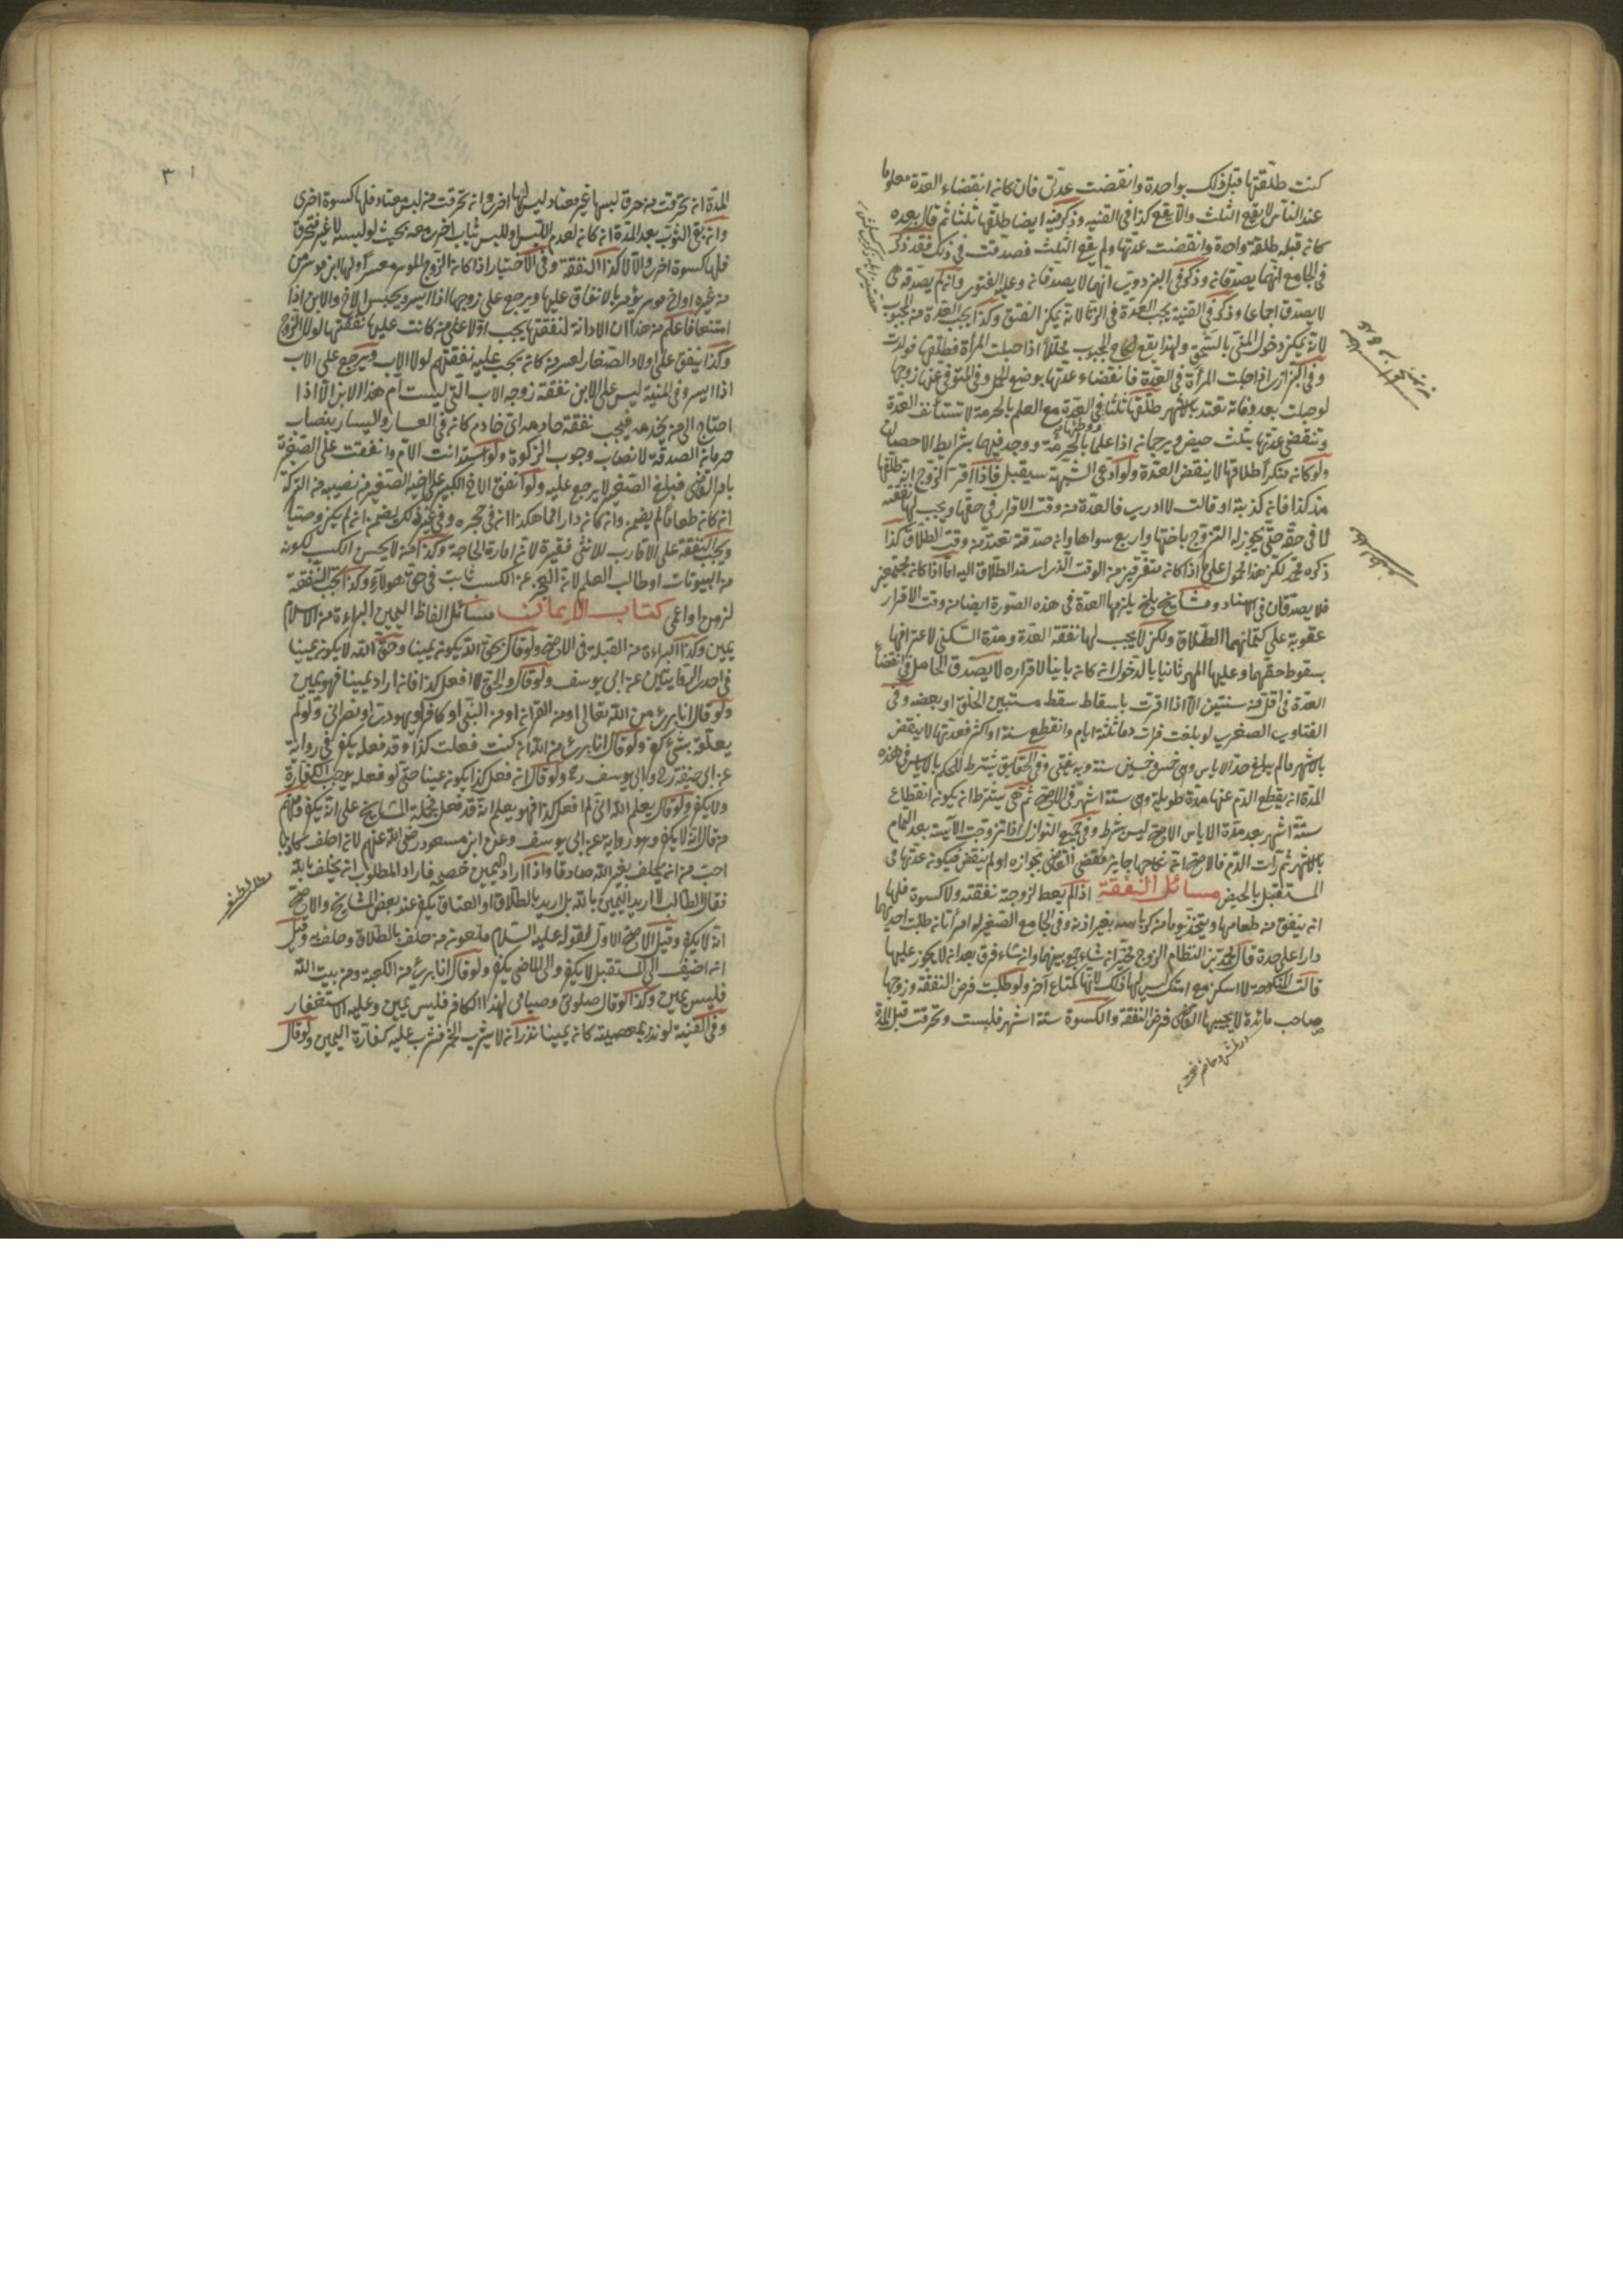 كنت طلقتها قبل ذلك بواحدة وانقضت عدتى فان كان انقضاء العدة معلوما
عند الناس لا يقع الثلث والا يقع كذا فى القنيه وذكر فيه ايضا طلقها ثلثا ثم قال بعده
كان قبله طلقة واحدة وانقضت عدتها ولم يقع الثلث فصدقت فى ذلك فقد ذكر
فى الجامع انهما يصدقان وذكر فى البزدوى انهما لا يصدقان وعليه الفتوى وان لم يصدقه هى
لا يصدق اجماعا وذكر فى القنية يجب العدة فى الرتقا لانه يمكن الفتق وكذا يجب العدة من المجبوب
لانه يمكن دخول المنى بالسحق ولهذا يقع نكاح المجبوب محللا اذا حبلت المرأة فطلقها فولدت
وفى الخزازى اذا حبلت المرأة فى العدة فانقضاء عدتها بوضع الحمل وفى المتوفى عنها زوجها
لو حبلت بعد وفاته تعتد بالاشهر طلقها ثلثا فى العدة مع العلم بالحرمة لا تستأنف العدة
وتنقضى عدتها بثلث حيض ويرجمان اذا علما بالحرمة ووجد فيهما شرايط الاحصان
ولو كان منكرا طلاقها لا ينقض العدة ولو ادعى الشبهة يستقبل فاذا اقر الزوج انه طلقها
منذ كذا فان كذبته او قالت لا ادرى فالعدة من وقت الاقرار فى حقها ويجب لها نفقته
لا فى حقه حتى يجوز له التزوج باختها واربع سواها وان صدقته تعتد من وقت الطلاق كذا
ذكره محمد لكن هذا محمول على اذا كان متفرقين من الوقت الذى اسند الطلاق اليه اما اذا كان مجتمعين
فلا يصدقان فى الاسناد ومشايخ بلخ يلزمها العدة فى هذه الصورة ايضا من وقت الاقرار
عقوبة على كتمانهما الطلاق ولكن لا يجب لها نفقة العدة ومدة السكنى لاعترافها
بسقوط حقهما وعليها المهر ثانيا بالدخول ان كان باينا لاقراره لا يصدق الحامل فى انقضاء
العدة فى اقل من سنتين الا اذا اقرت باسقاط سقط مستبين الخلق او بعضه وفى
الفتاوى الصغرى لو بلغت فرات دما ثلثة ايام وانقطع سنة او اكثر فعدتها لا ينقض
بالاشهر ما لم يبلغ حد الاياس وهى خمس وخمسين سنة وبه يفتى وفى الحقايق يشترط للحكم بالاياس فى هذه
المدة ان يقطع الدم عنها مدة طويلة وهى ستة اشهر فى الاصح ثم هى يشترط ان يكون انقطاع
ستة اشهر بعد مدة الاياس الاصح ليس بشرط وفى جميع النوازل اذا تزوجت الآيسة بعد التمام
بالاشهر ثم رأت الدم فالاصح ان نكاحها جايز فقضى القاضى بجوازه او لم ينقض فيكون عدتها فى
المستقبل بالحيض مسائل النفقة اذا لم يعط لزوجته نفقته ولا كسوة فلها
ان ينفق من طعامها ويتخذ ثوبا من كرباسه بغير اذنه وفى الجامع الصغير له امرأتان طلبت احديهما
دارا على حدة قال نجم الدين النظام الزوج مخير ان شاء جمع بينهما وان شاء فرق بعد ان لا يجوز عليها
قالت المنكوحة لا اسكن مع امتك ليس لها ذلك لانها كمتاع آخر ولو طلبت فرض النفقة وزوجها
صاحب مائدة لا يجيبها القاضى فرض النفقة والكسوة ستة اشهر فلبست وتخرقت قبل المدة
٣١
المدة ان تخرقت من خرق لبسها غير معتاد ليس لها اخرى وان تخرقت من لبس معتاد فلها كسوة اخرى
وان بقى الثوب بعد المدة ان كان لعدم اللبس او للبس ثياب اخرى معه بحيث لو لبسه لا غير فتخرق
فلها كسوة اخرى والا لا كذا النفقة وفى الاختيار اذا كان الزوج الموسر معسرا ولها ابن موسر من
من غيره او اخ موسر يؤمر بالانفاق عليها ويرجع على زوجها اذا ايسر ويحبس الاخ والابن اذا
امتنعا فاعلم من هذا ان الادانة لنفقتها يجب اولا على من كانت عليها نفقتها لولا الزوج
وكذا ينفق على اولاد الصغار لمعسر من كان يجب عليه نفقتهم لولا الاب ويرجع على الاب
اذا ايسر وفى المنية ليس على الابن نفقة زوجة الاب التى ليست ام هذا الابن الا اذا
احتاج الى من يخدمه فيجب نفقة خادمه اى خادم كان فى العسار واليسار بنصاب
حرمان الصدقة لا نصاب وجوب الزكوة ولو استدانت الام وانفقت على الصغيرة
بامر القاضى فبلغ الصغير لا يرجع عليه ولو انفق الاخ الكبير على اخيه الصغير من نصيبه من التركة
ان كان طعاما لم يضمن وان كان دراهما هكذا ان فى حجره وفى غير ذلك يضمن ان لم يكن وصيا
ويجب النفقة على الاقارب للانثى فقيرة لانه امارة الحاجة وكذا من لا يحسن الكسب لكونه
من البيوتات او طالب العلم لان العجز عن الكسب ثابت فى حق هولآء وكذا يجب النفقة
لزمن او اعمى كتاب الايمان مسائل الفاظ اليمين البراءة من الاسلام
يمين وكذا البراءة من القبلة فى الاصح ولو قال بحق الله يكون يمينا وحق الله لا يكون يمينا
فى احدى الروايتين عن ابى يوسف ولو قال والحق لا افعل كذا فان اراد يمينا فهو يمين
ولو قال انا برئ من الله تعالى او من القرآن او من النبى او كافر او يهودى او نصرانى ولو لم
يعلقه بشئ كفر ولو قال انا برئ من الله ان كنت فعلت كذا وقد فعله يكفر فى رواية
عن ابى حنيفة رح وابى يوسف رح ولو قال ان فعل كذا يكون يمينا حتى لو فعله يوجب الكفارة
ولا يكفر ولو قال يعلم الله انى لم افعل كذا فهو يعلم انه قد فعل فجملة المشايخ على انه يكفر ومنهم
من قال انه لا يكفر وهو رواية عن ابى يوسف وعن ابن مسعود رضى الله عنهم لان احلف كاذبا
احب من ان يحلف بغير الله صادقا واذا اراد اليمين خصمه فاراد المطلوب ان يحلف بالله
فقال الطالب لا اريد اليمين بالله بل اريد بالطلاق او العتاق يكفر عند بعض المشايخ والاصح
انه لا يكفر وقيل الاصح الاول لقوله عليه السلام ملعون من حلف بالطلاق وحلف به وقيل
ان اضيف الى المستقبل لا يكفر والى الماضى يكفر ولو قال انا برئ من الكعبة ومن بيت الله
فليس يمين وكذا لو قال صلوتى وصيامى لهذا الكافر فليس يمين وعليه الاستغفار
وفى القنية لو نذر بمعصيته كان يمينا نذر انه لا يشرب الخمر فشرب عليه كفارة اليمين ولو قال